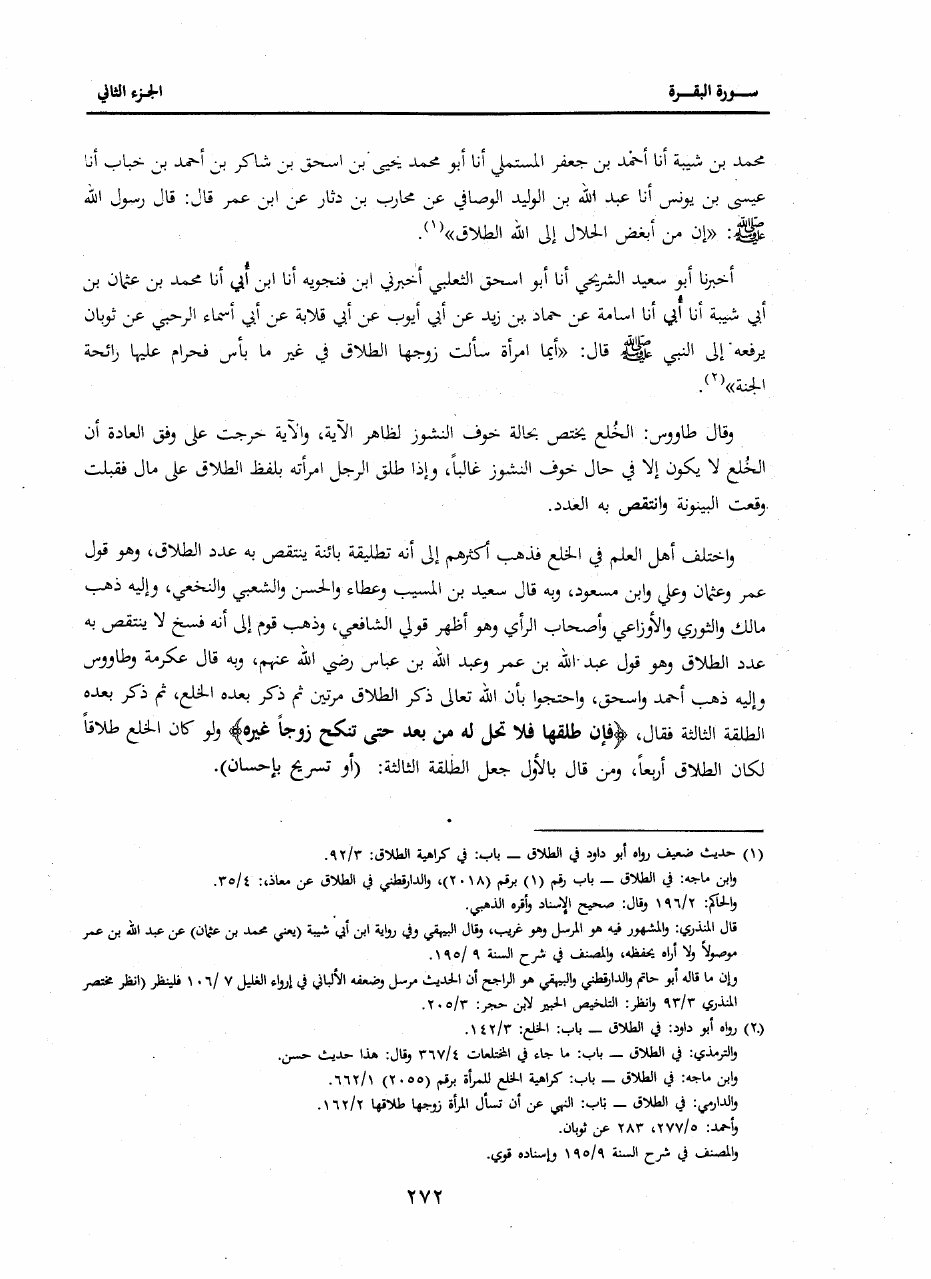 سورة البقرة
الجزء الثاني
محمد بن شيبة أنا أحمد بن جعفر المستملي أنا أبو محمد يحيى بن اسحق بن شاكر بن أحمد بن خباب أنا
عيسى بن يونس أنا عبد الله بن الوليد الوصافي عن محارب بن دثار عن ابن عمر قال: قال رسول الله
ﷺ: «إن من أبغض الحلال إلى الله الطلاق»(١).
أخبرنا أبو سعيد الشريحي أنا أبو اسحق الثعلبي أخبرني ابن فنجويه أنا ابن أبي أنا محمد بن عثمان بن
أبي شيبة أنا أبي أنا اسامة عن حماد بن زيد عن أبي أيوب عن أبي قلابة عن أبي أسماء الرحبي عن ثوبان
يرفعه إلى النبي ﷺ قال: «أيما امرأة سألت زوجها الطلاق في غير ما بأس فحرام عليها رائحة
الجنة»(٢).
وقال طاووس: الخُلع يختص بحالة خوف النشوز لظاهر الآية، والآية خرجت على وفق العادة أن
الخُلع لا يكون إلا في حال خوف النشوز غالباً، وإذا طلق الرجل امرأته بلفظ الطلاق على مال فقبلت
وقعت البينونة وانتقص به العدد.
واختلف أهل العلم في الخلع فذهب أكثرهم إلى أنه تطليقة بائنة ينتقص به عدد الطلاق، وهو قول
عمر وعثمان وعلي وابن مسعود، وبه قال سعيد بن المسيب وعطاء والحسن والشعبي والنخعي، وإليه ذهب
مالك والثوري والأوزاعي وأصحاب الرأي وهو أظهر قولي الشافعي، وذهب قوم إلى أنه فسخ لا ينتقص به
عدد الطلاق وهو قول عبد الله بن عمر وعبد الله بن عباس رضي الله عنهم، وبه قال عكرمة وطاووس
وإليه ذهب أحمد واسحق، واحتجوا بأن الله تعالى ذكر الطلاق مرتين ثم ذكر بعده الخلع، ثم ذكر بعده
الطلقة الثالثة فقال، ﴿فإن طلقها فلا تحل له من بعد حتى تنكح زوجاً غيره﴾ ولو كان الخلع طلاقاً
لكان الطلاق أربعاً، ومن قال بالأول جعل الطلقة الثالثة: (أو تسريح بإحسان).
(١) حديث ضعيف رواه أبو داود في الطلاق ــ باب: في كراهية الطلاق: ٩٢/٣.
وابن ماجه: في الطلاق ــ باب رقم (١) برقم (٢٠١٨)، والدارقطني في الطلاق عن معاذ،: ٣٥/٤.
والحاكم: ١٩٦/٢ وقال: صحيح الإسناد وأقره الذهبي.
قال المنذري: والمشهور فيه هو المرسل وهو غريب، وقال البيهقي وفي رواية ابن أبي شيبة (يعني محمد بن عثمان) عن عبد الله بن عمر
موصولاً ولا أراه يحفظه، والمصنف في شرح السنة ٩ /١٩٥.
وإن ما قاله أبو حاتم والدارقطني والبيهقي هو الراجح أن الحديث مرسل وضعفه الألباني في إرواء الغليل ٧ /١٠٦ فلينظر (انظر مختصر
المنذري ٩٣/٣ وانظر: التلخيص الحبير لابن حجر: ٢٠٥/٣.
(٢) رواه أبو داود: في الطلاق ــ باب: الخلع: ١٤٢/٣.
والترمذي: في الطلاق ــ باب: ما جاء في المختلعات ٣٦٧/٤ وقال: هذا حديث حسن.
وابن ماجه: في الطلاق ــ باب: كراهية الخلع للمرأة برقم (٢٠٥٥) ٦٦٢/١.
والدارمي: في الطلاق ــ باب: النهي عن أن تسأل المرأة زوجها طلاقها ١٦٢/٢.
وأحمد: ٢٧٧/٥، ٢٨٣ عن ثوبان.
والمصنف في شرح السنة ١٩٥/٩ وإسناده قوي.
٢٧٢